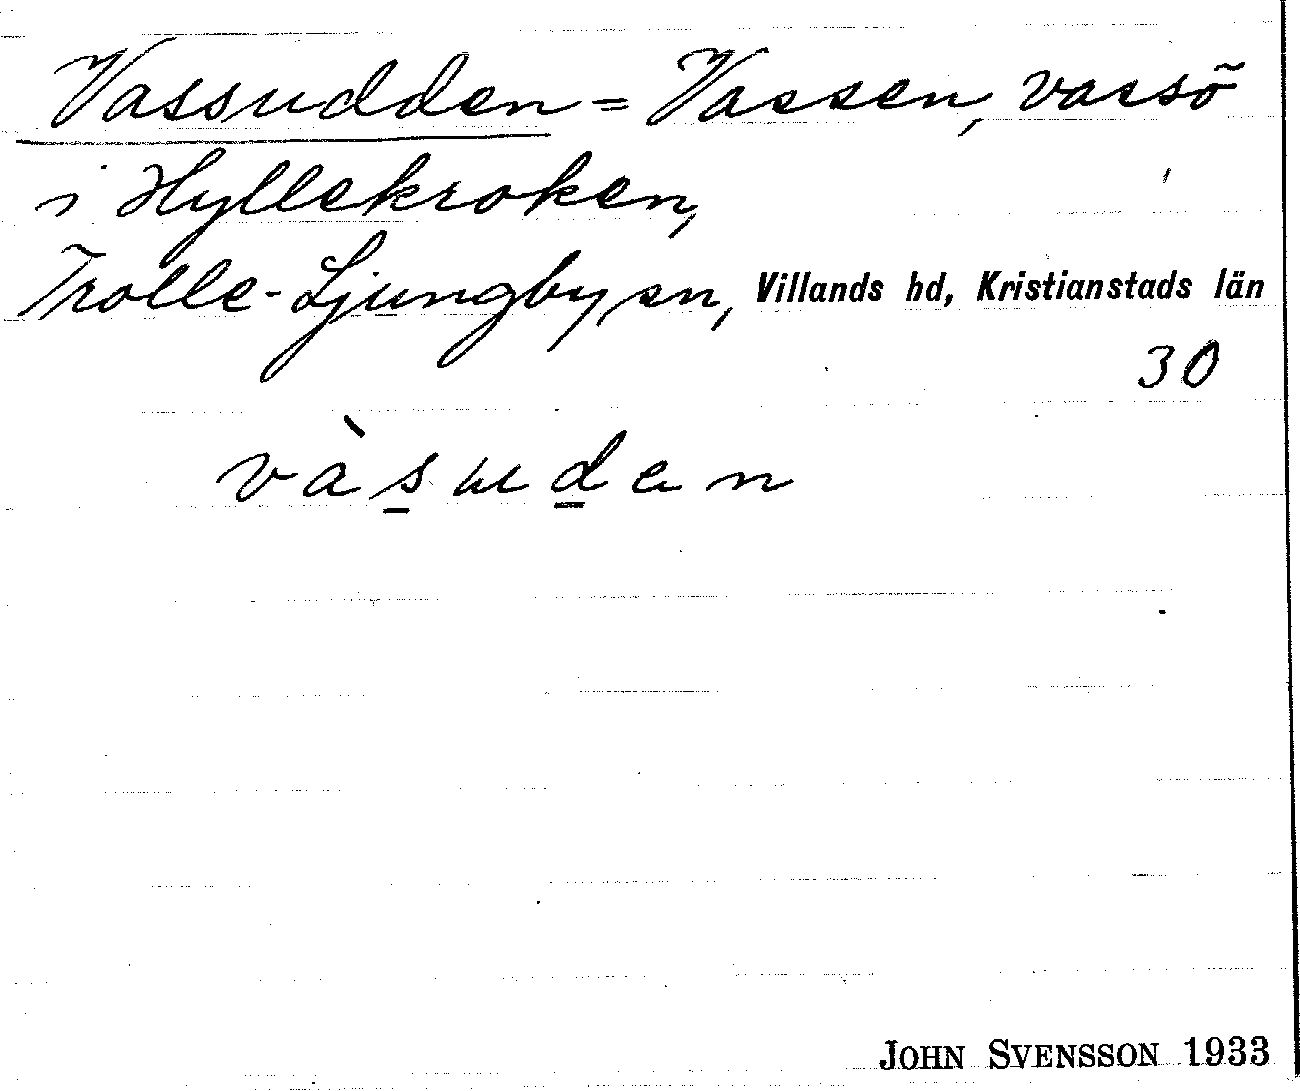 Vassudden = Vassen, vassö
i Hyllekroken,
Trolle-Ljungby sn, Villands hd, Kristianstads län
30
vàsuden
JOHN SVENSSON 1933